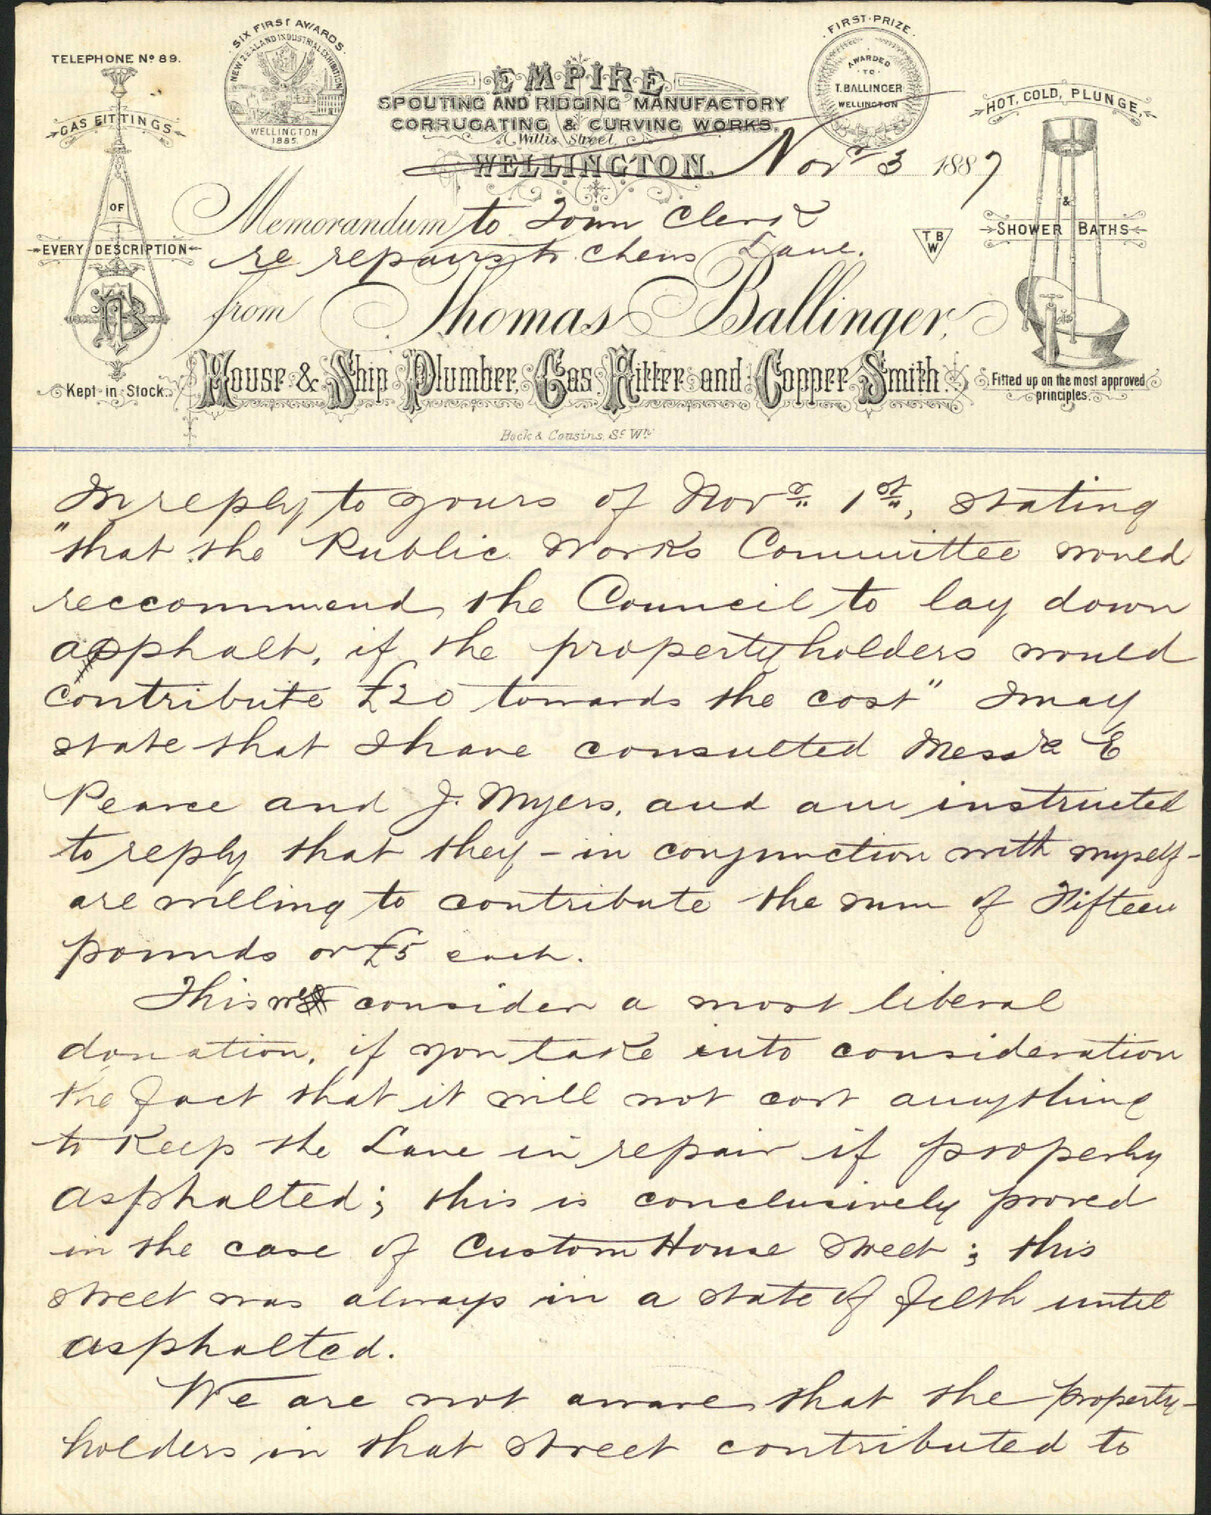 TELEPHONE Nº 89.
GAS FITTINGS
OF
EVERY DESCRIPTION
TB
Kept in Stock.
SIX FIRST AWARDS
NEW ZEALAND INDUSTRIAL EXHIBITION
WELLINGTON
1885.
EMPIRE
SPOUTING AND RIDGING MANUFACTORY
CORRUGATING & CURVING WORKS.
Willis Street,
WELLINGTON.
FIRST-PRIZE.
AWARDED
TO
T. BALLINGER
WELLINGTON
HOT, COLD, PLUNGE,
&
SHOWER BATHS
T B
W
Fitted up on the most approved
principles.
Novr 3 1887
Memorandum to Town Clerk
re repairs to Chews Lane.
from Thomas Ballinger,
House & Ship Plumber, Gas Fitter and Copper Smith.
Bock & Cousins, Sc. Wn
In reply to yours of Novr 1st, stating
"that the Public Works Committee would
reccommend the Council to lay down
asphalt, if the property holders would
contribute £20 towards the cost" I may
state that I have consulted Messrs E
Pearce and J. Myers, and am instructed
to reply that they - in conjunction with myself -
are willing to contribute the sum of Fifteen
pounds or £5 each.
This we consider a most liberal
donation, if you take into consideration
the fact that it will not cost anything
to keep the Lane in repair if properly
asphalted; this is conclusively proved
in the case of Custom House Street; this
street was always in a state of filth until
asphalted.
We are not aware that the property-
holders in that street contributed to